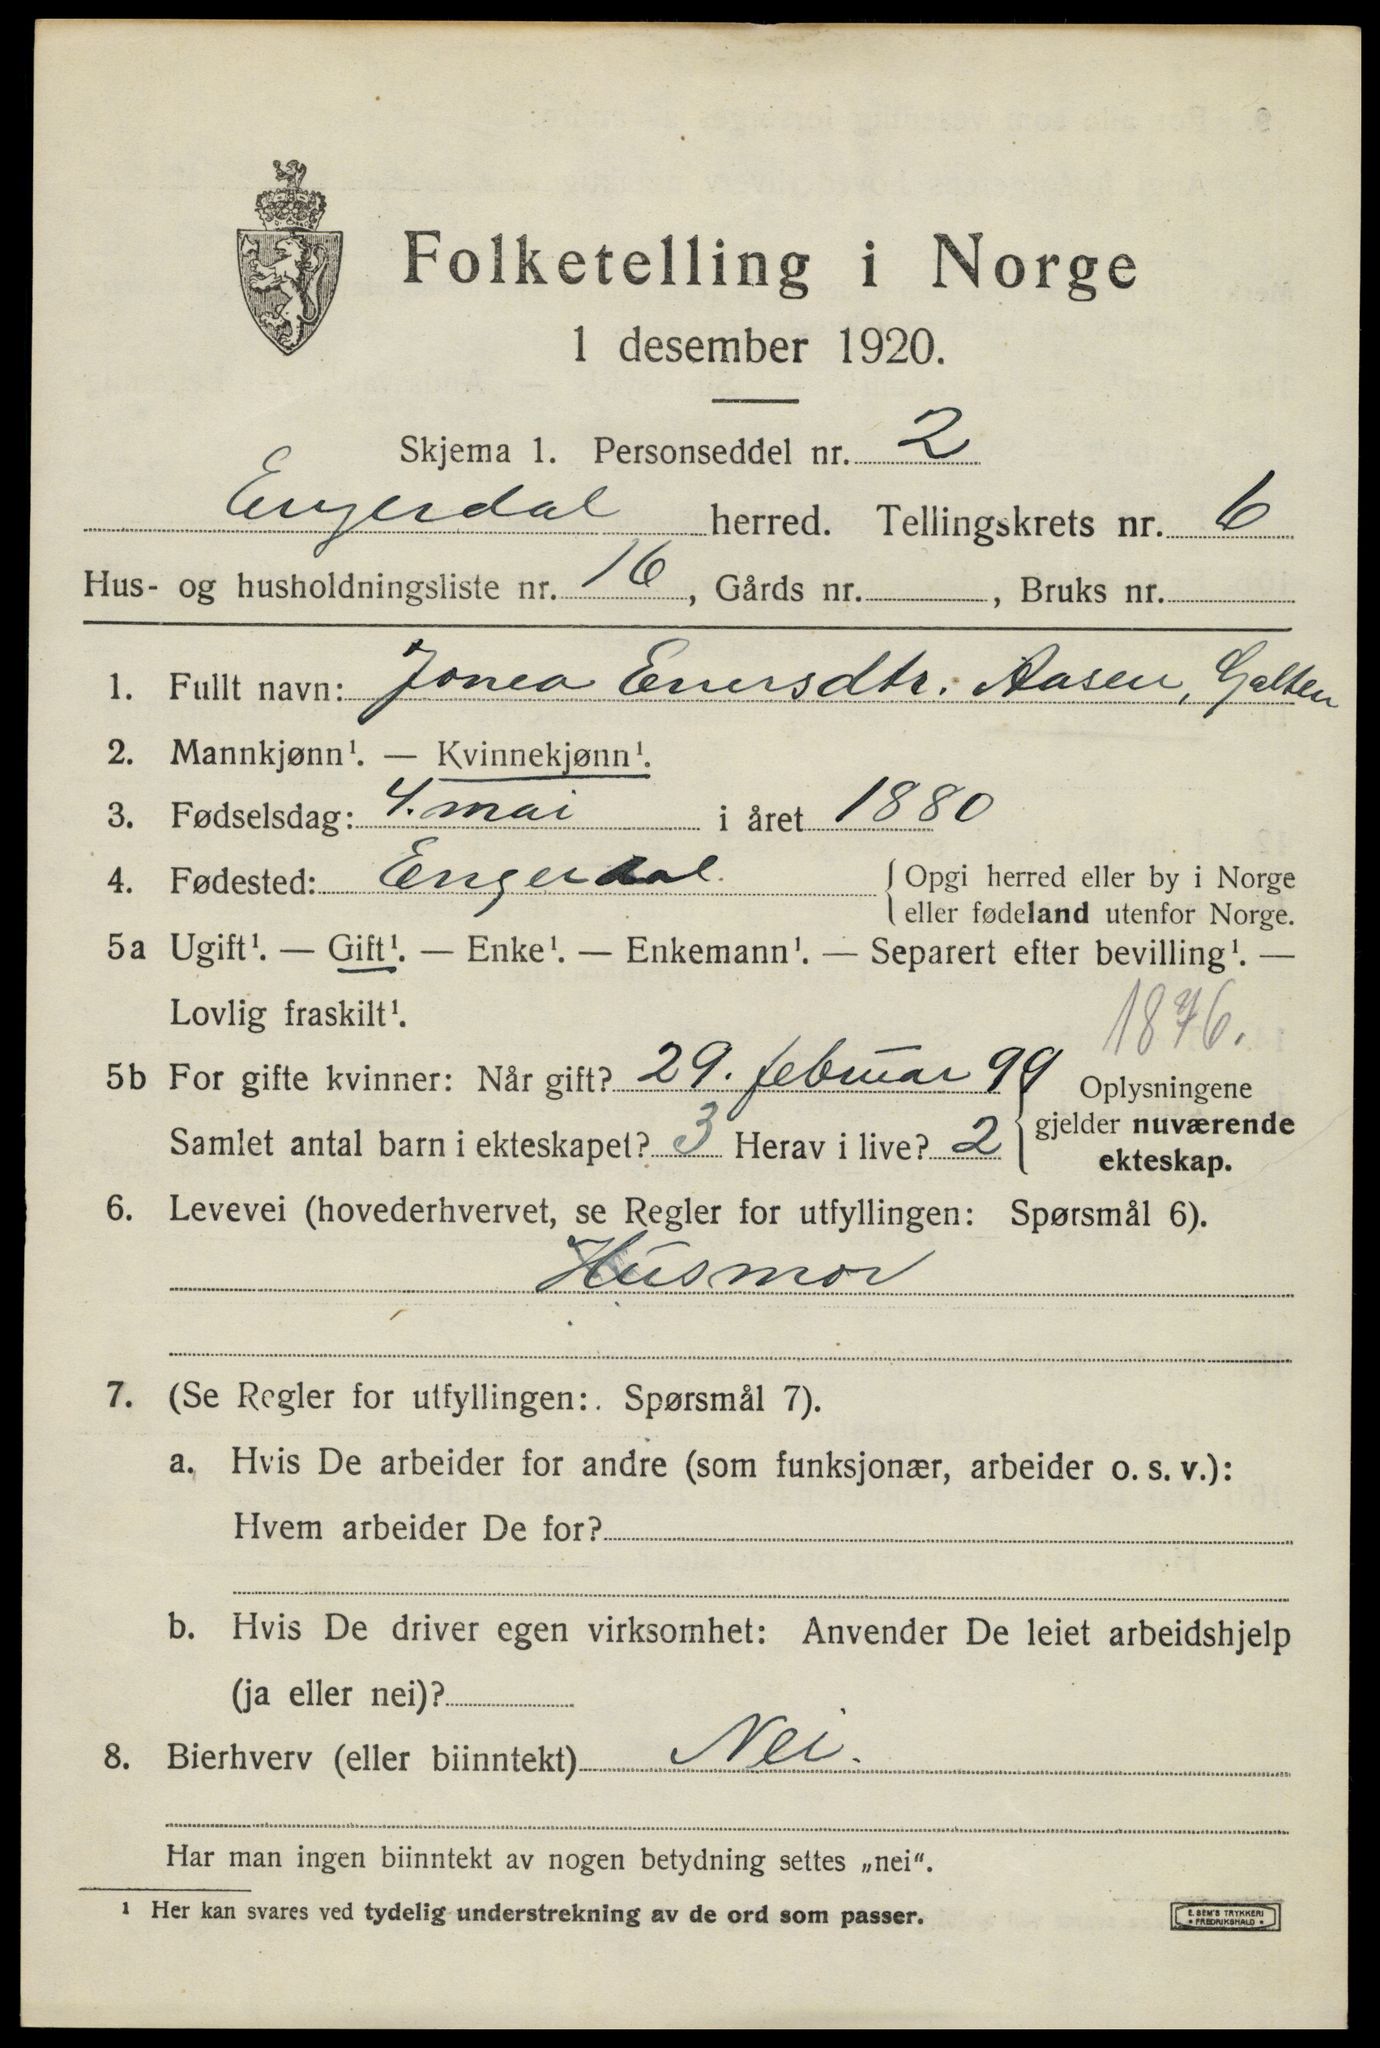 Folketelling i Norge
1 desember 1920.
Skjema 1. Personseddel nr. 2
Engerdal herred. Tellingskrets nr. 6
Hus- og husholdningsliste nr. 16, Gårds nr. , Bruks nr.
1. Fullt navn: Jonea Enersdtr. Aasen, Galten
2. Mannkjønn¹. — Kvinnekjønn¹.
3. Fødselsdag: 4. mai i året 1880
4. Fødested: Engerdal. Opgi herred eller by i Norge
eller fødeland utenfor Norge.
5a Ugift¹. — Gift¹. — Enke¹. — Enkemann¹. — Separert efter bevilling¹. —
Lovlig fraskilt¹.
1876.
5b For gifte kvinner: Når gift? 29. februar 99 Oplysningene
gjelder nuværende
Samlet antal barn i ekteskapet? 3 Herav i live? 2
ekteskap.
6. Levevei (hovederhvervet, se Regler for utfyllingen: Spørsmål 6).
Husmor
7. (Se Regler for utfyllingen: Spørsmål 7).
a. Hvis De arbeider for andre (som funksjonær, arbeider o. s. v.):
Hvem arbeider De for?
b. Hvis De driver egen virksomhet: Anvender De leiet arbeidshjelp
(ja eller nei)?
8. Bierhverv (eller biinntekt) Nei.
Har man ingen biinntekt av nogen betydning settes „nei“.
¹ Her kan svares ved tydelig understrekning av de ord som passer.
E. SEM'S TRYKKERI
• FREDRIKSHALD •